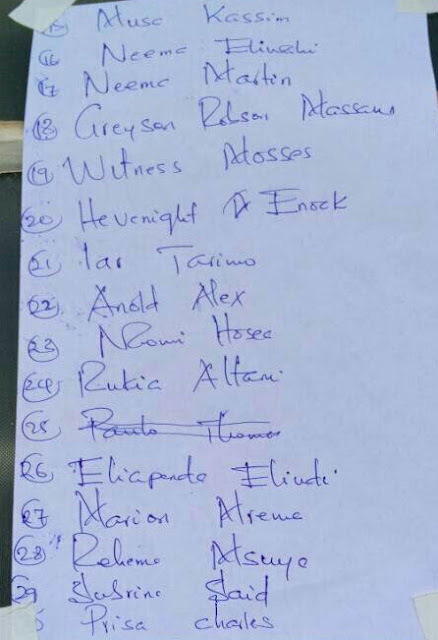 15 Musa Kassim
16 Neema Elineehi
17 Neema Martin
18 Greyson Robson Massawe
19 Witness Mosses
20 Hevenight A Enock
21 Iar Tarimo
22 Anold Alex
23 Nkomi Hosea
24 Rukia Altani
25 Paulo Thomas
26 Eliapenda Eliudi
27 Marion Mrema
28 Rehema Msuya
29 Sabrina Said
Prisa charles